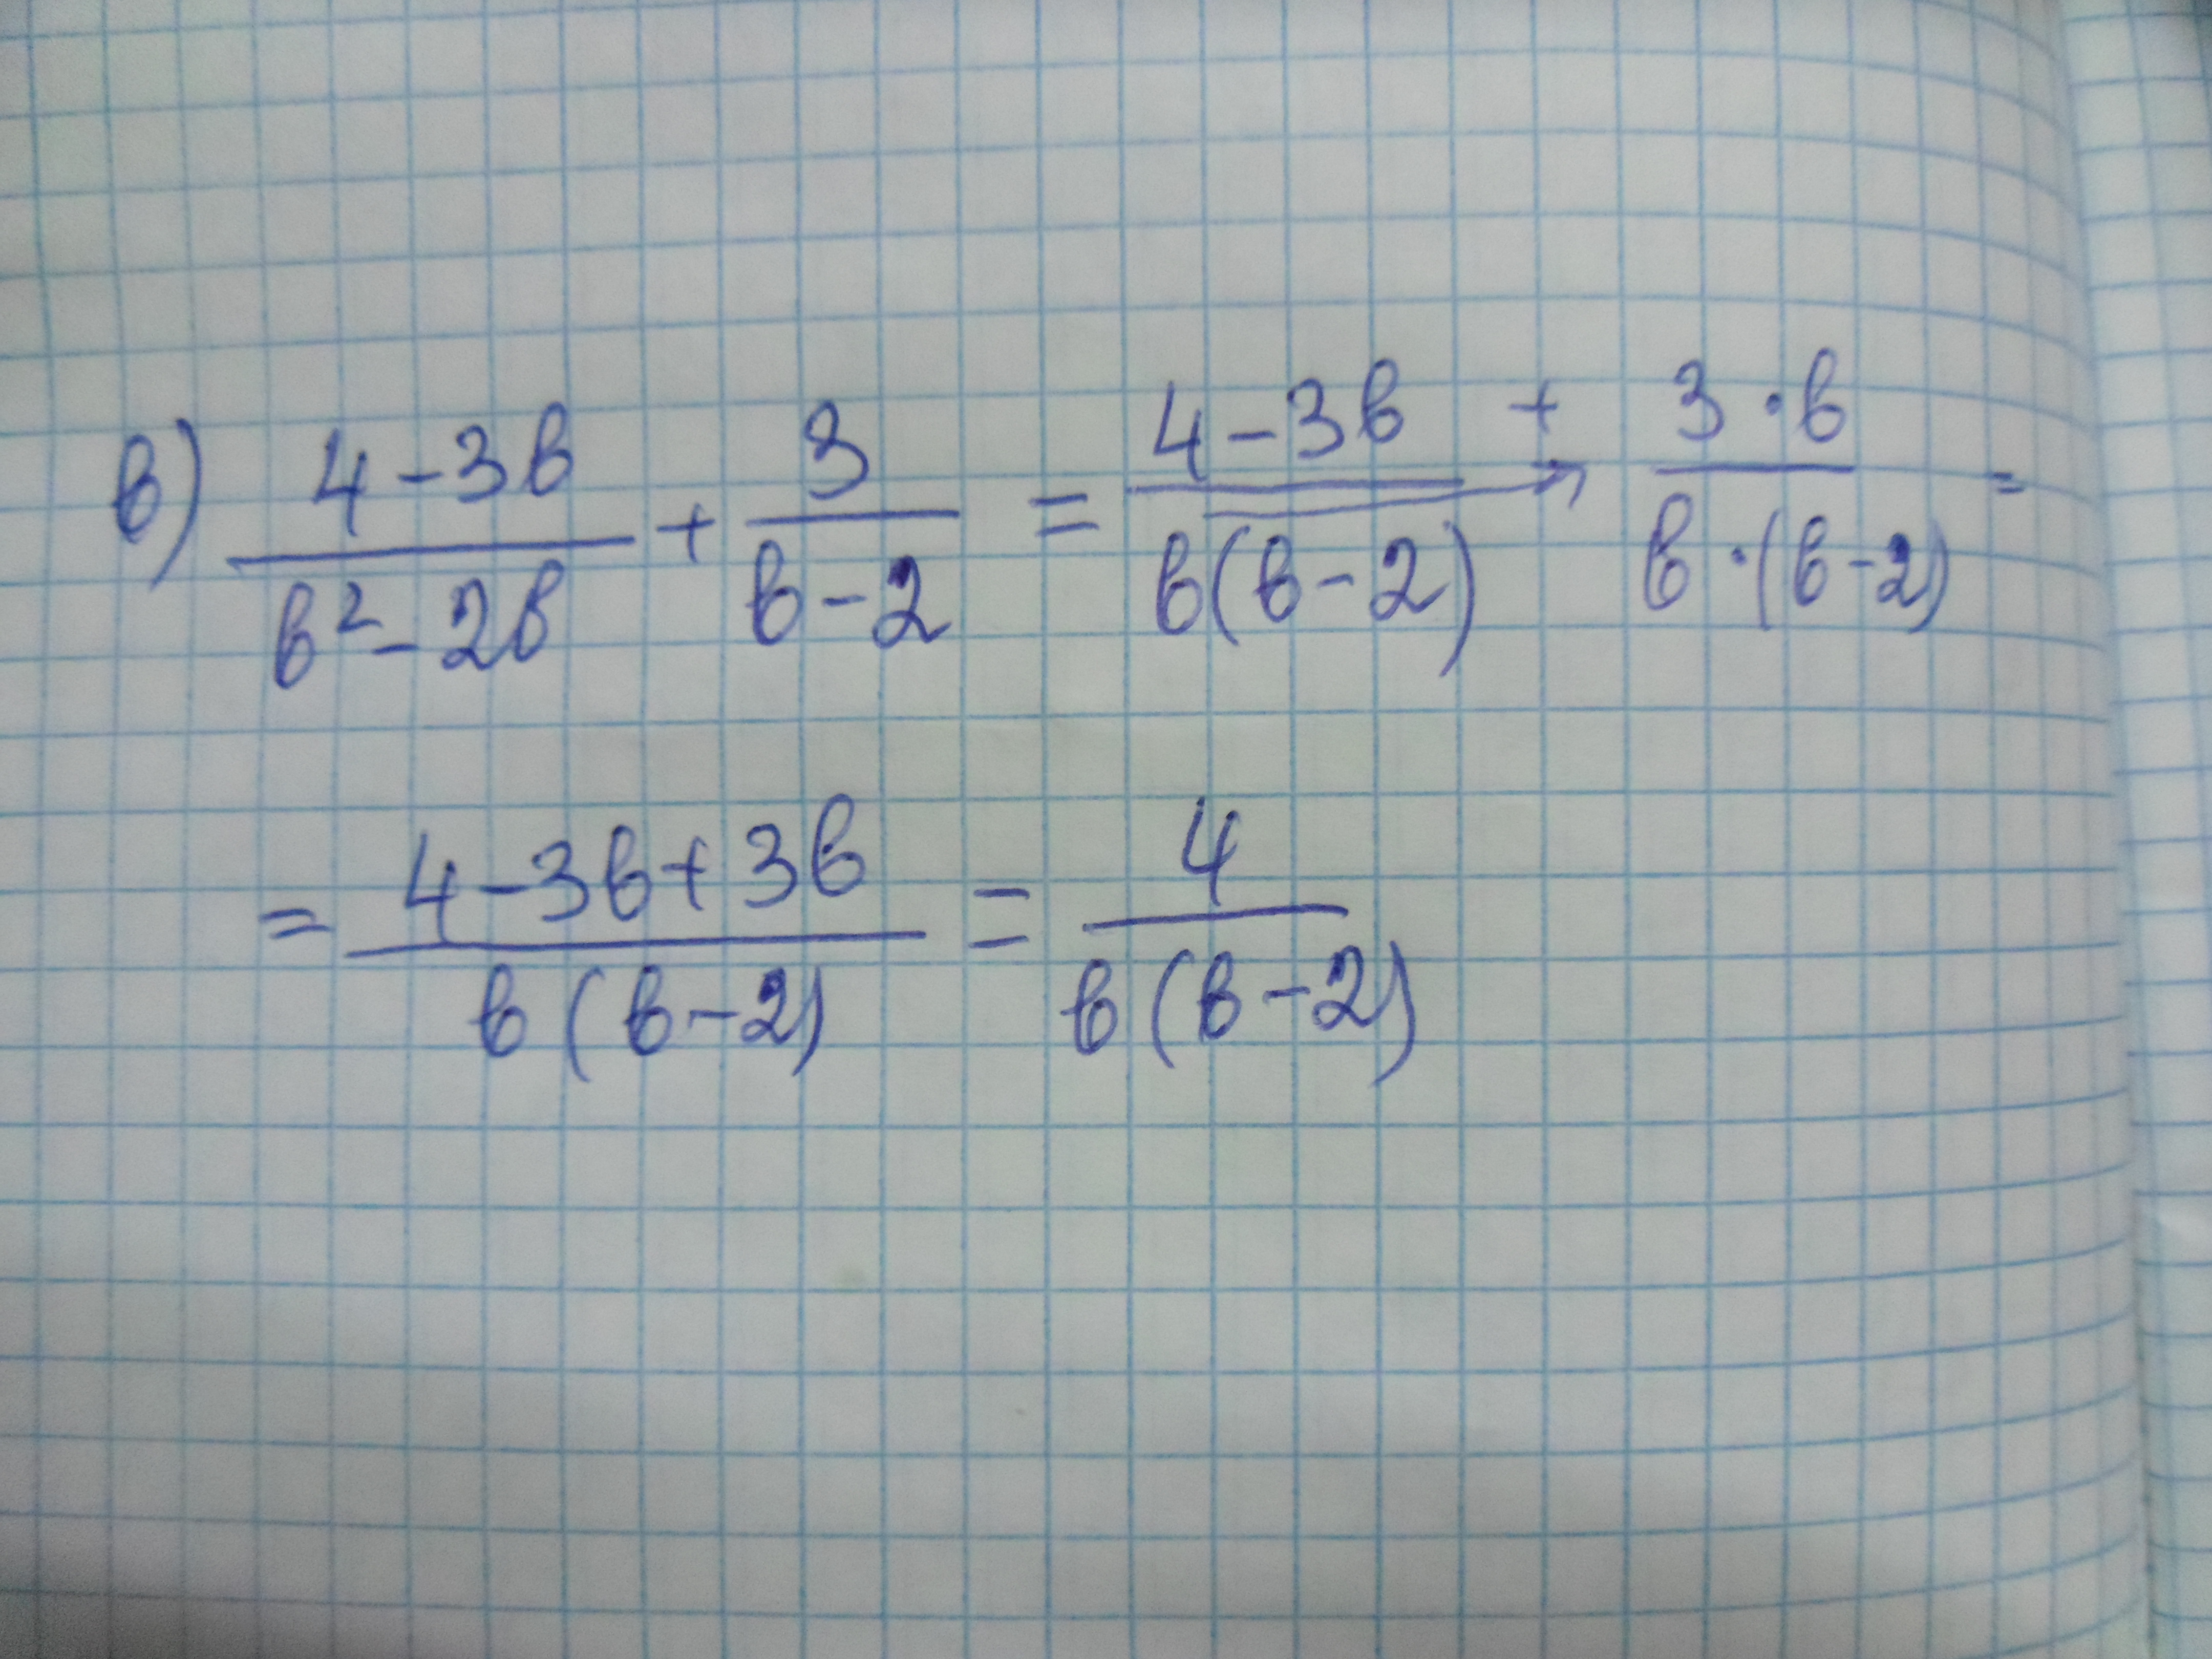 в) (4-3в)/(в²-2в) + 3/(в-2) = (4-3в)/(в(в-2)) + → (3·в)/(в·(в-2)) =
= (4-3в+3в)/(в(в-2)) = 4/(в(в-2))